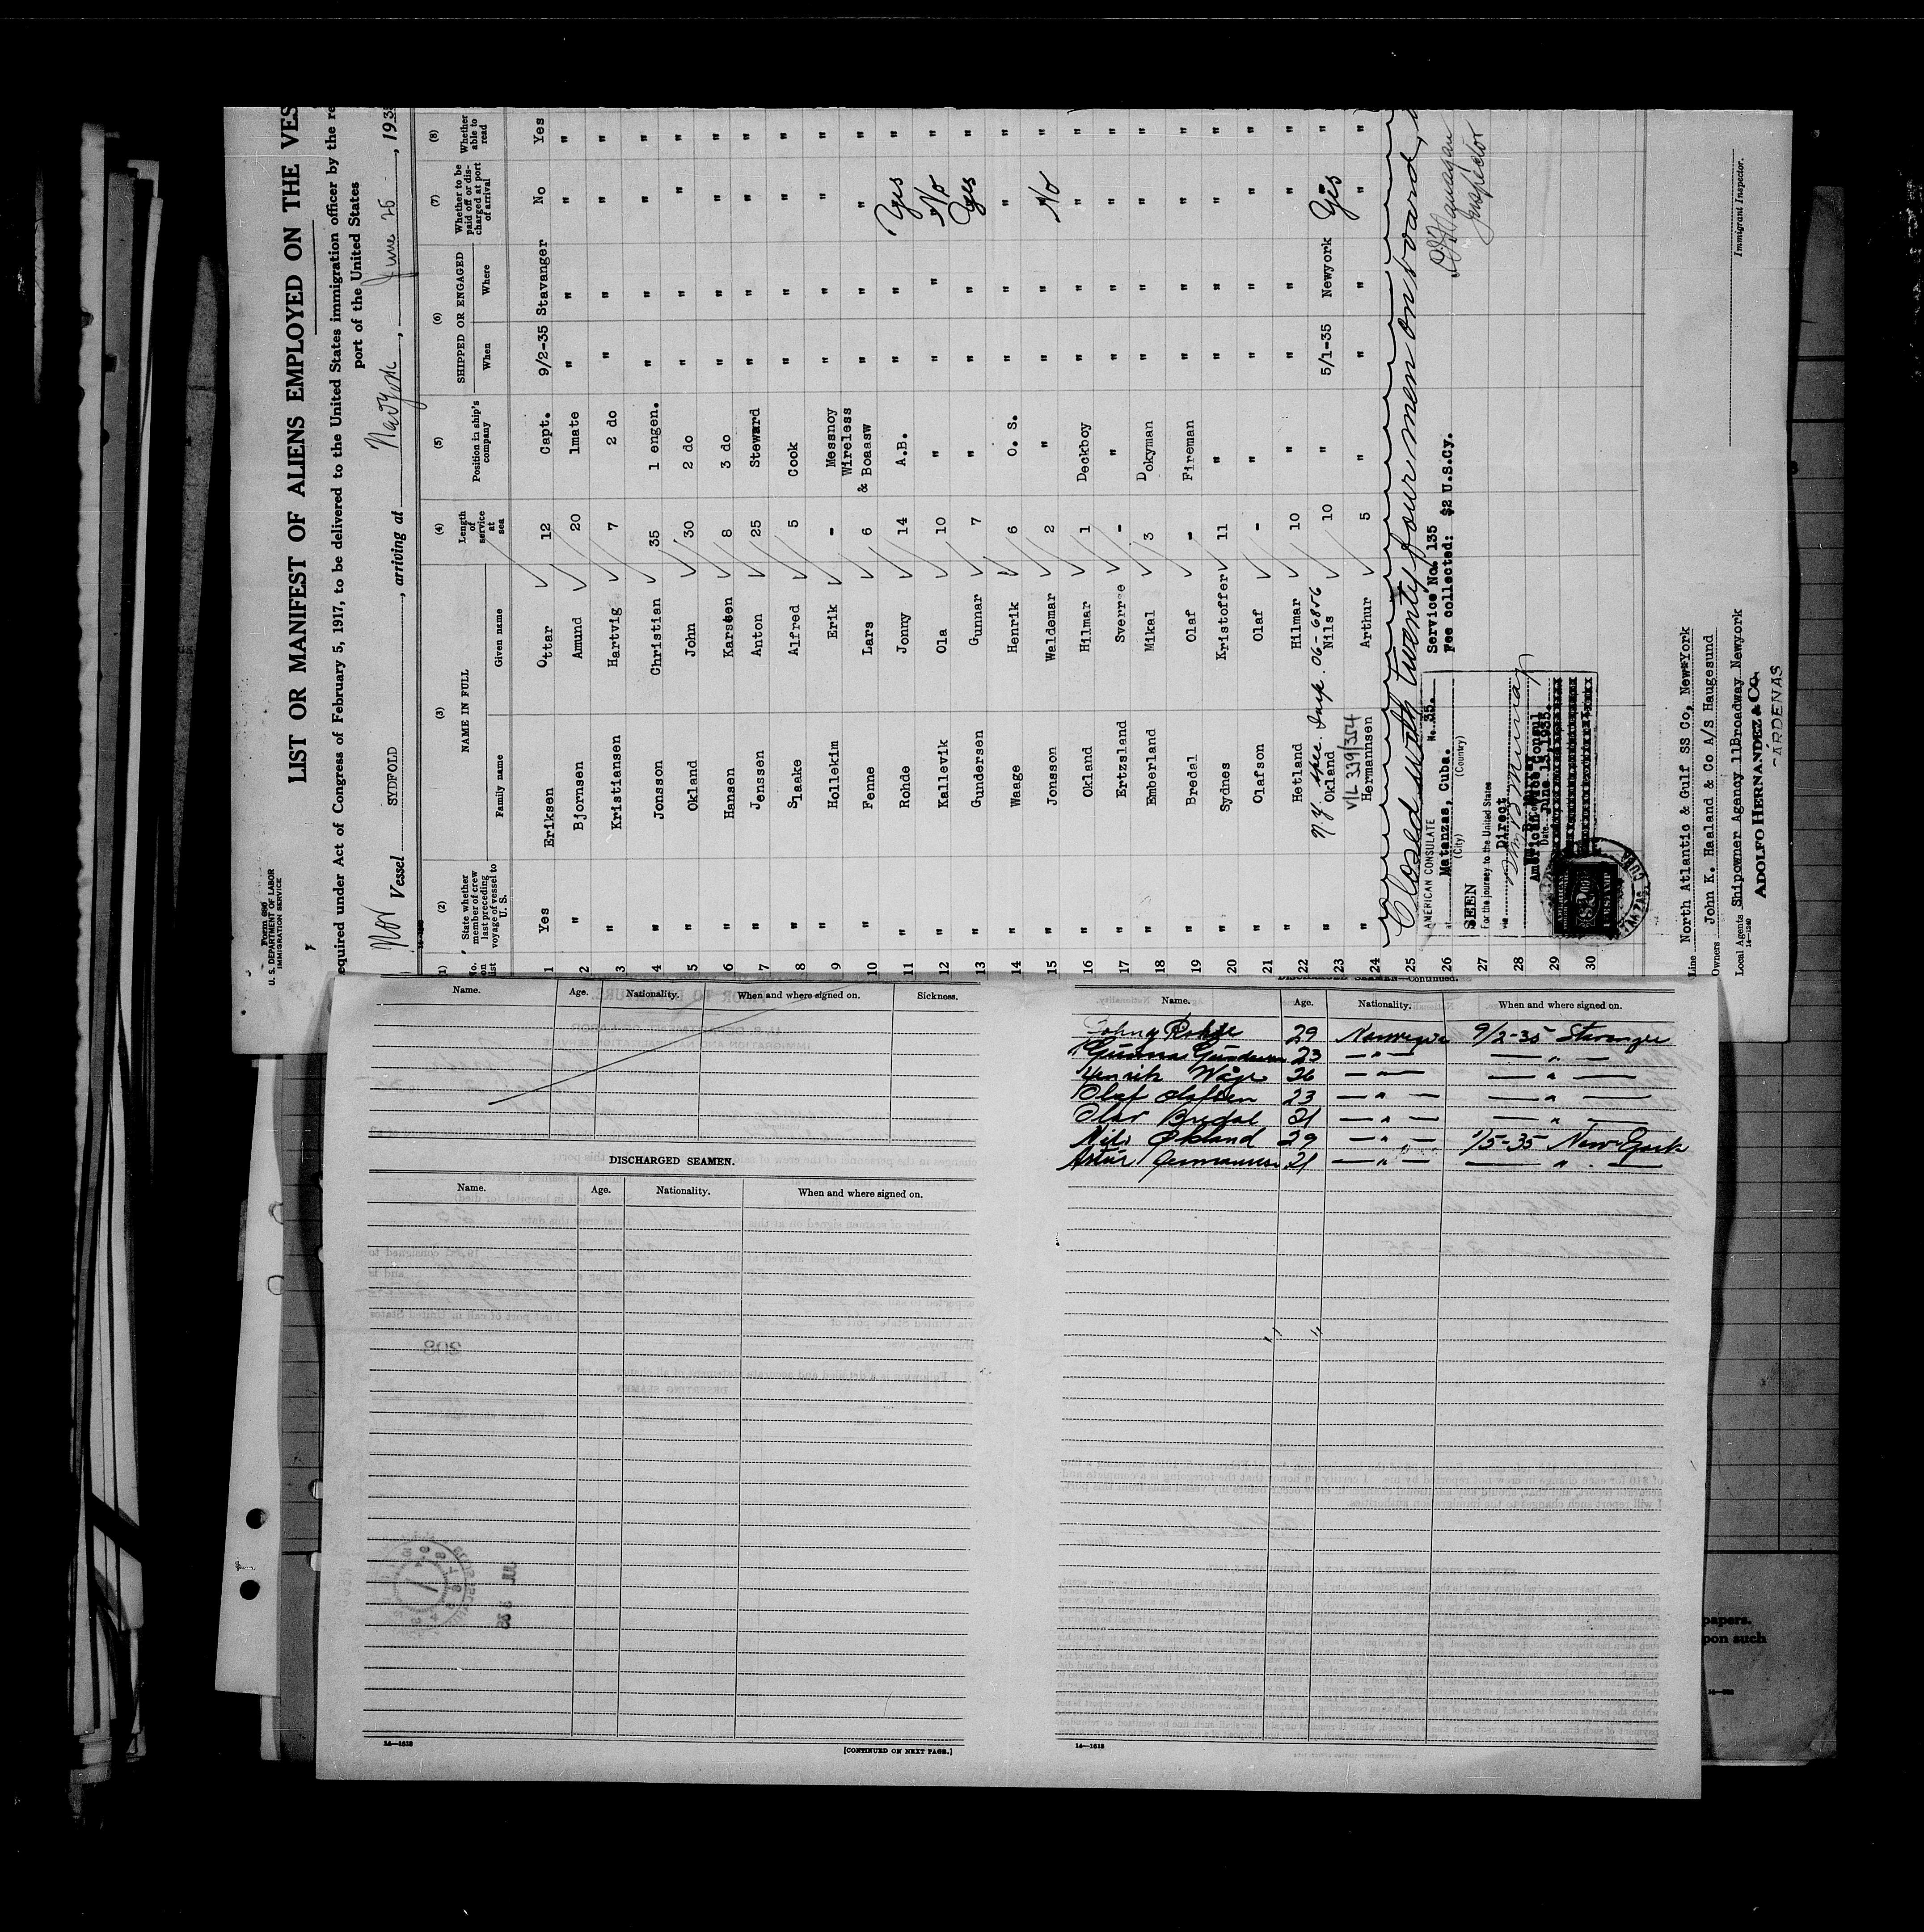 Form 680
U. S. DEPARTMENT OF LABOR
IMMIGRATION SERVICE
LIST OR MANIFEST OF ALIENS EMPLOYED ON THE VES
equired under Act of Congress of February 5, 1917, to be delivered to the United States immigration officer by the re
port of the United States
Nor Vessel SYDFOLD, arriving at New York, June 25, 193
(1) (2) (3) (4) (5) (6) (7) (8)
No. on list
State whether member of crew last preceding voyage of vessel to U. S.
NAME IN FULL
Family name Given name
Length of service at sea
Position in ship's company
SHIPPED OR ENGAGED
When Where
Whether to be paid off or discharged at port of arrival
Whether able to read
1 Yes Eriksen Ottar 12 Capt. 9/2-35 Stavanger No Yes
2 " Bjornsen Amund 20 1mate " " " "
3 " Kristiansen Hartvig 7 2 do " " " "
4 " Jonsson Christian 35 1 engen. " " " "
5 " Okland John 30 2 do " " " "
6 " Hansen Karsten 8 3 do " " " "
7 " Jenssen Anton 25 Steward " " " "
8 " Slaake Alfred 5 Cook " " " "
9 " Hollekim Erik - Messnoy " " " "
Wireless
10 " Fenne Lars 6 & Boaasw " " " "
11 " Rohde Jonny 14 A.B. " " Yes "
12 " Kallevik Ola 10 " " " No "
13 " Gundersen Gunnar 7 " " " Yes "
14 " Waage Henrik 6 O. S. " " " "
15 " Jonsson Waldemar 2 " " " No "
16 " Okland Hilmar 1 Deckboy " " " "
17 " Ertzsland Sverree - " " " " "
18 " Emberland Mikal 3 Dokyman " " " "
19 " Bredal Olaf - Fireman " " " "
20 " Sydnes Kristoffer 11 " " " " "
21 " Olafson Olaf - " " " " "
22 " Hetland Hilmar 10 " " " "
N.Y. spec. Insp. 06-6856
23 " Okland Nils 10 " 5/1-35 Newyork Yes "
V/L 339/354
24 " Hermannsen Arthur 5 " " " " "
25 Closed with twenty four men on board,
26
27
28
29
30
Inspector
AMERICAN CONSULATE No. 35.
at Matanzas, Cuba.
(City) (Country)
SEEN
For the journey to the United States
via Direct
Wm B Murray
Wm. B. Murray
American Vice Consul
Date June 19, 1935.
Service No. 135
Fee collected: $2 U.S.Cy.
Line North Atlantic & Gulf SS Co, New York
Owners John K. Haaland & Co A/S Haugesund
Local Agents Shipowner Agency 11Broadway Newyork
14-1240
ADOLFO HERNANDEZ & CO.
CARDENAS
Immigrant Inspector.
Name. Age. Nationality. When and where signed on. Sickness.
DISCHARGED SEAMEN.
Name. Age. Nationality. When and where signed on.
14—1613
[CONTINUED ON NEXT PAGE.]
DISCHARGED SEAMEN—Continued.
Name. Age. Nationality. When and where signed on.
Johny Rohde 29 9/2-35 Stavanger
Gunnar Gundersen 23 — " — — " —
Henrik Wåge 26 — " — — " —
Olaf Olafsen 23 — " — — " —
Olav Bredal 21 — " — — " —
Nils Økland 29 — " — 1/5-35 New York
Artur Hermannsen 21 — " — — " —
14—1613
papers.
pon such